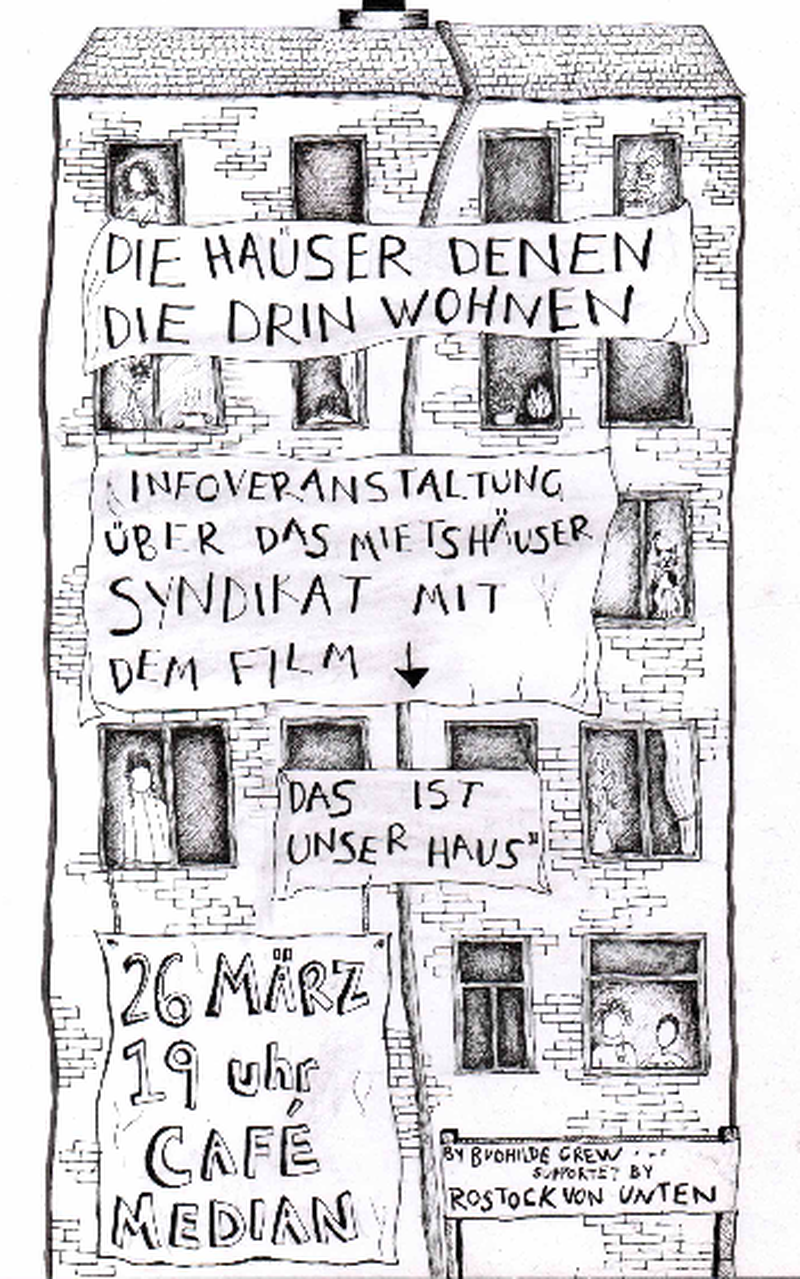 DIE HAÜSER DENEN
DIE DRIN WOHNEN
INFOVERANSTALTUNG
ÜBER DAS MIETSHÄUSER
SYNDIKAT MIT
DEM FILM ↓
DAS IST
UNSER HAUS"
26 MÄRZ
19 uhr
CAFÉ
MEDIAN
BY BUOHILDE CREW ...
SUPPORTET BY
ROSTOCK VON UNTEN